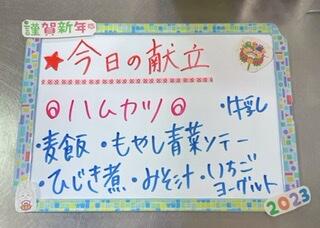 謹賀新年
★今日の献立
◎ハムカツ◎ ・牛乳
・麦飯 ・もやし青菜ソテー
・ひじき煮 ・みそ汁 ・いちご
ヨーグルト
2023